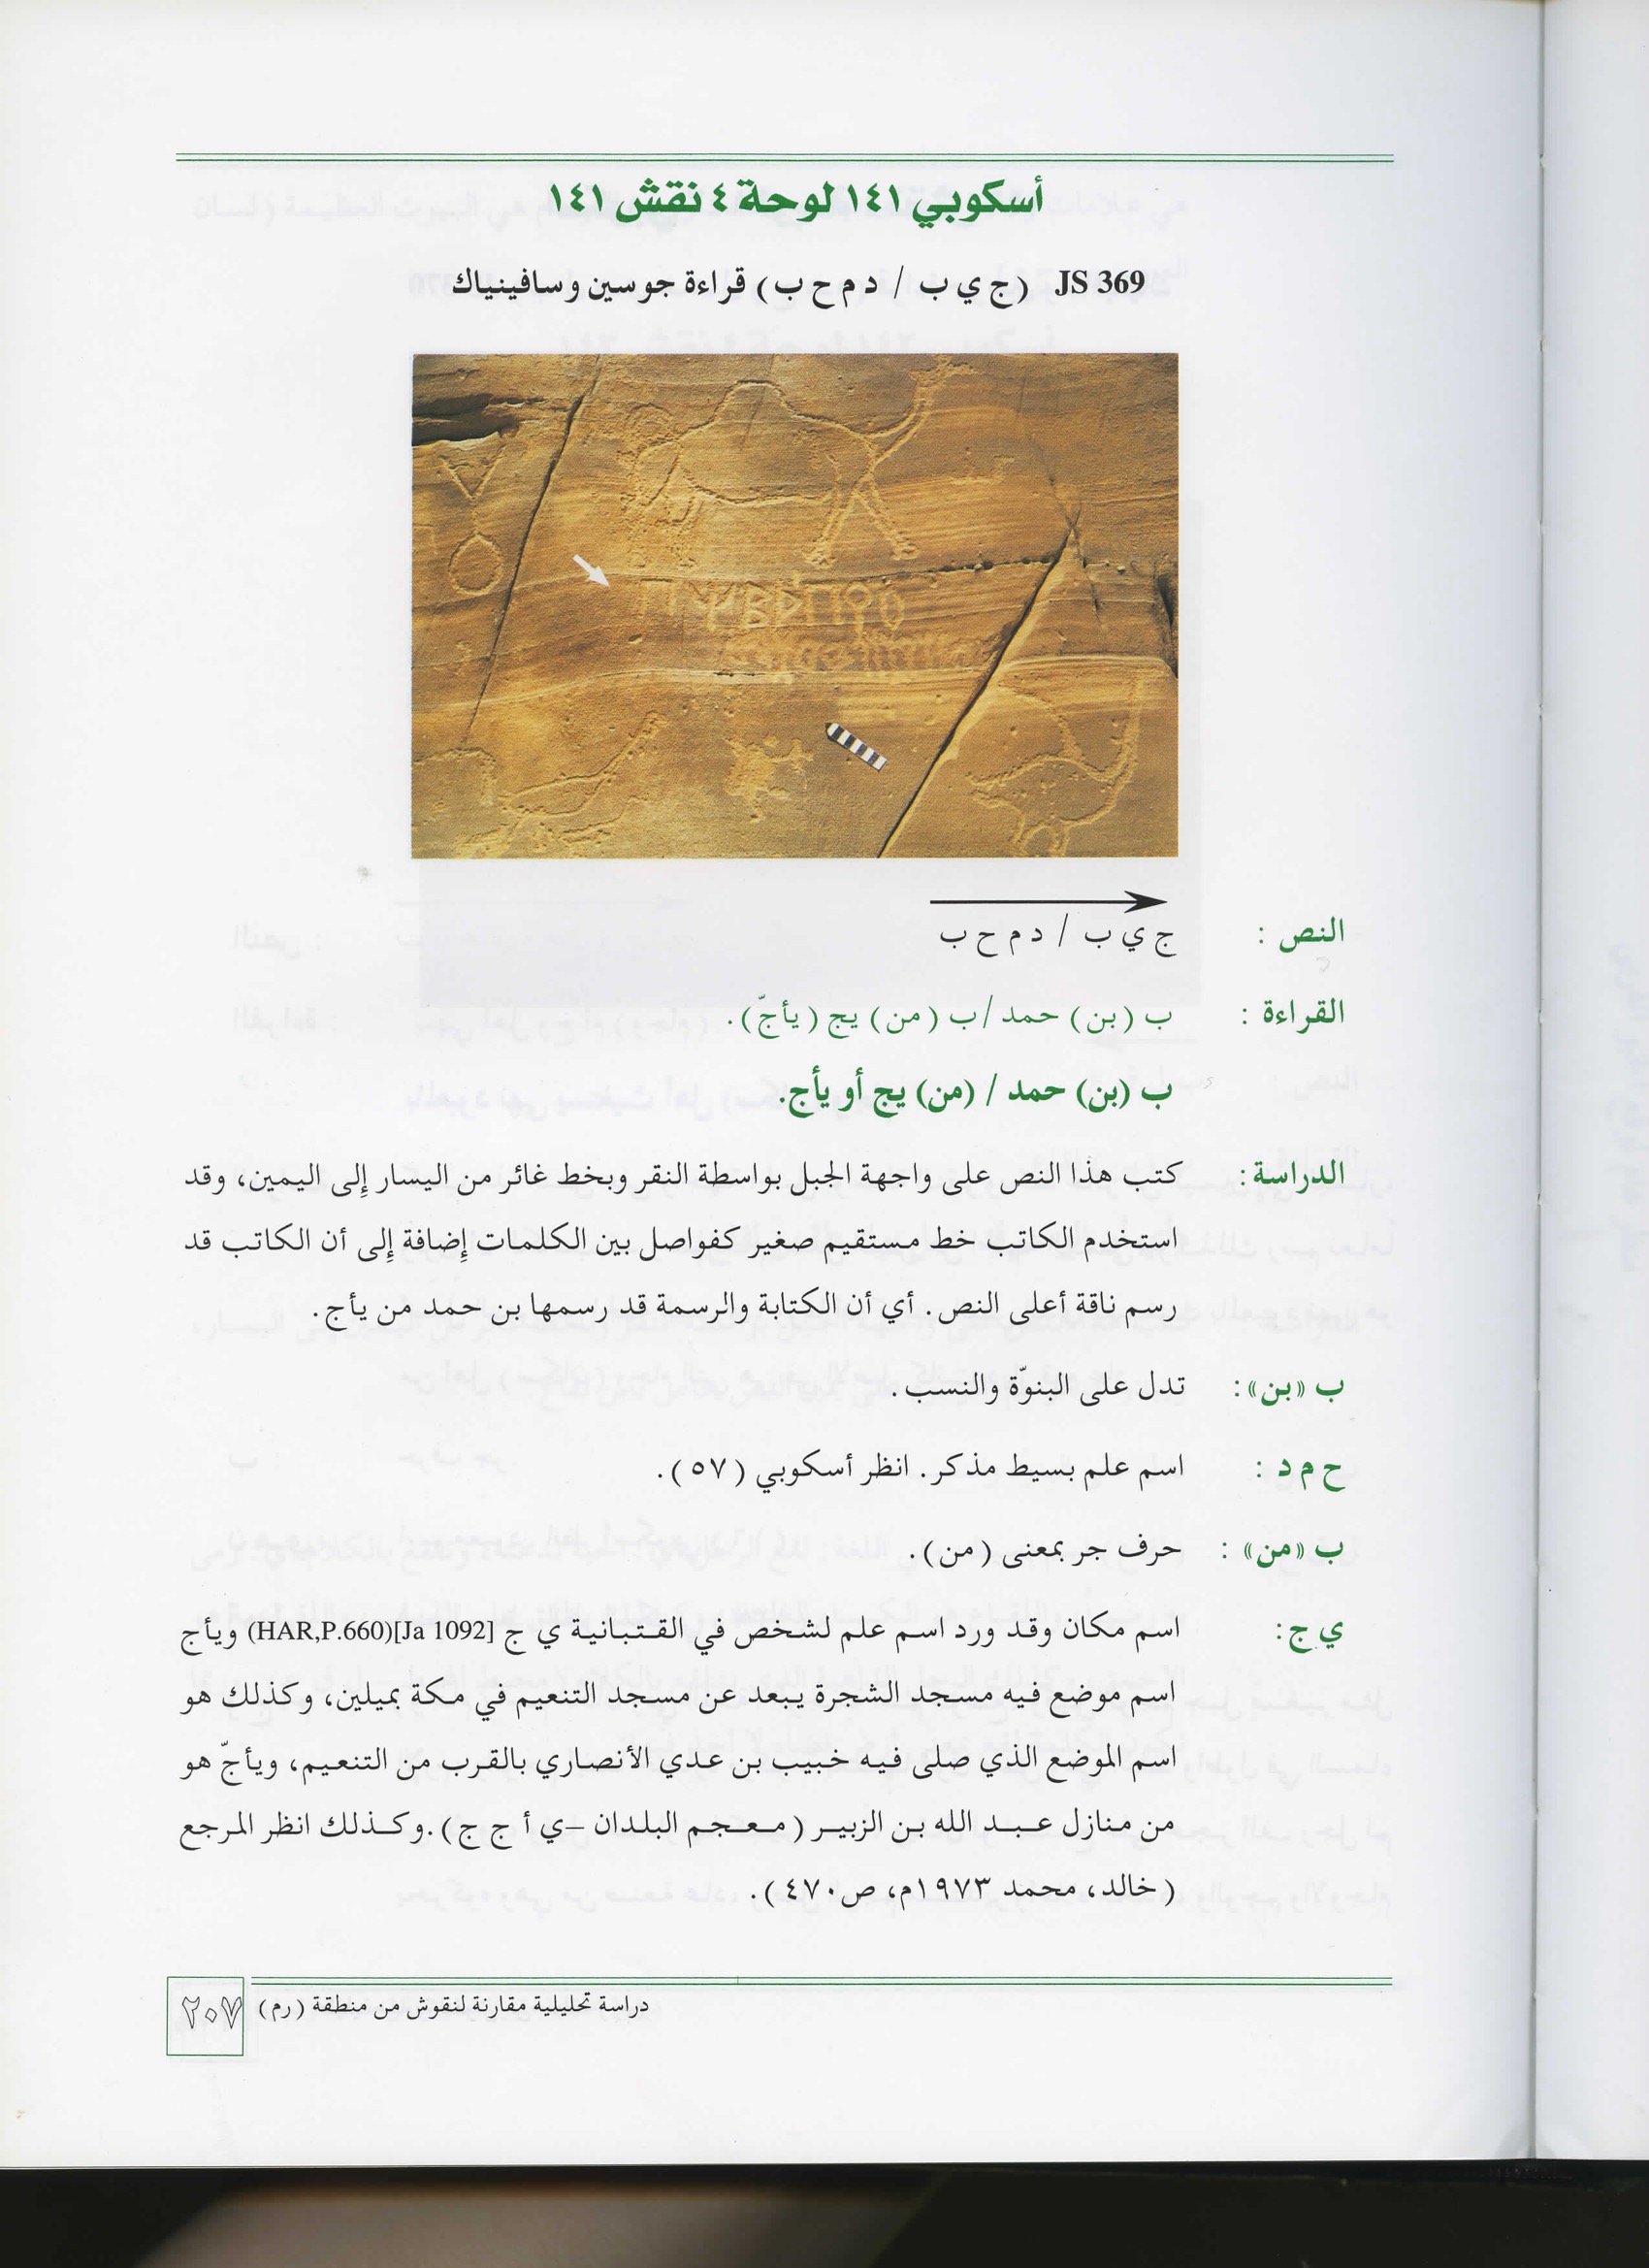 أسكوبي ١٤١ لوحة ٤ نقش ١٤١
JS 369 (ج ي ب / د م ح ب) قراءة جوسين وسافينياك
النص : ج ي ب / د م ح ب
القراءة : ب (بن) حمد /ب (من) يج (يأجّ).
ب (بن) حمد / (من) يج أو يأج.
الدراسة: كتب هذا النص على واجهة الجبل بواسطة النقر وبخط غائر من اليسار إلى اليمين، وقد
استخدم الكاتب خط مستقيم صغير كفواصل بين الكلمات إضافة إلى أن الكاتب قد
رسم ناقة أعلى النص. أي أن الكتابة والرسمة قد رسمها بن حمد من يأج.
ب «بن»: تدل على البنوّة والنسب.
ح م د : اسم علم بسيط مذكر. انظر أسكوبي (٥٧).
ب «من» : حرف جر بمعنى (من).
ي ج: اسم مكان وقد ورد اسم علم لشخص في القتبانية ي ج [Ja 1092](HAR,P.660) ويأج
اسم موضع فيه مسجد الشجرة يبعد عن مسجد التنعيم في مكة بميلين، وكذلك هو
اسم الموضع الذي صلى فيه خبيب بن عدي الأنصاري بالقرب من التنعيم، ويأجّ هو
من منازل عبد الله بن الزبير (معجم البلدان –ي أ ج ج).وكذلك انظر المرجع
(خالد، محمد ١٩٧٣م، ص٤٧٠).
دراسة تحليلية مقارنة لنقوش من منطقة (رم) ٢٠٧